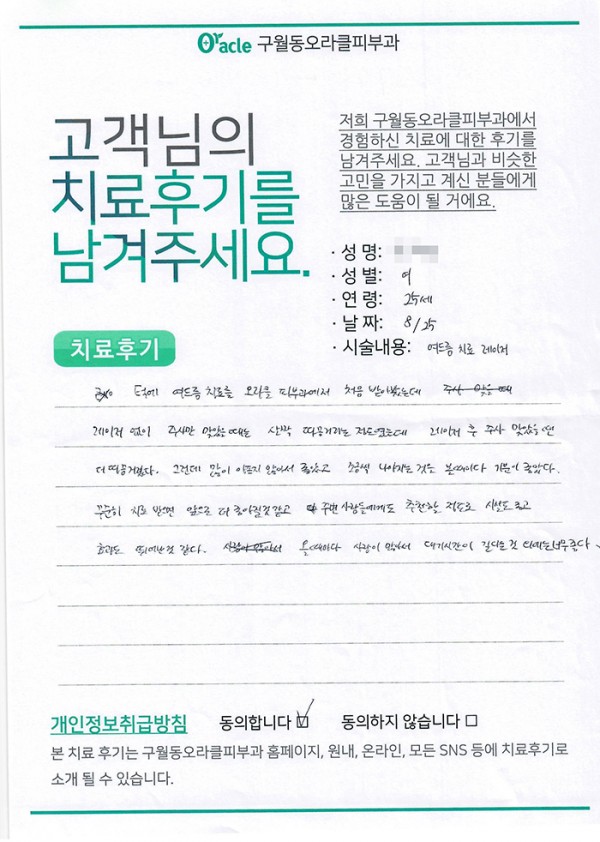 Oracle 구월동오라클피부과
고객님의
치료후기를
남겨주세요.
저희 구월동오라클피부과에서
경험하신 치료에 대한 후기를
남겨주세요. 고객님과 비슷한
고민을 가지고 계신 분들에게
많은 도움이 될 거에요.
· 성 명:
· 성 별: 여
· 연 령: 25세
· 날 짜: 8/25
· 시술내용: 여드름 치료 레이저
치료후기
턱에 여드름 치료를 오라클 피부과에서 처음 받아봤는데 주사 맞을 때
레이저 없이 주사만 맞았을 때는 살짝 따끔거리는 정도였는데 레이저 후 주사 맞았을 땐
더 따끔거렸다. 그런데 많이 아프지 않아서 좋았고 조금씩 나아지는 것을 볼때마다 기분이 좋았다.
꾸준히 치료 받으면 앞으로 더 좋아질것 같고 주변 사람들에게도 추천할 정도로 시설도 좋고
효과도 뛰어난것 같다. 올때마다 사람이 많아서 대기시간이 길다는 것 빼고는 너무 좋다
개인정보취급방침 동의합니다 ☑ 동의하지 않습니다 □
본 치료 후기는 구월동오라클피부과 홈페이지, 원내, 온라인, 모든 SNS 등에 치료후기로
소개 될 수 있습니다.